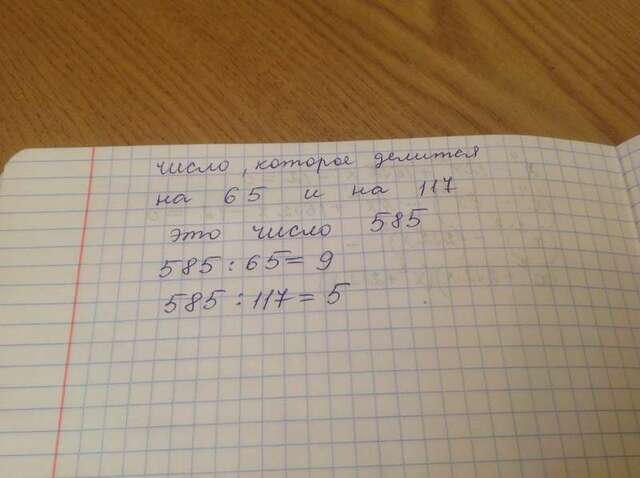 число, которое делится
на 65 и на 117
это число 585
585 : 65 = 9
585 : 117 = 5